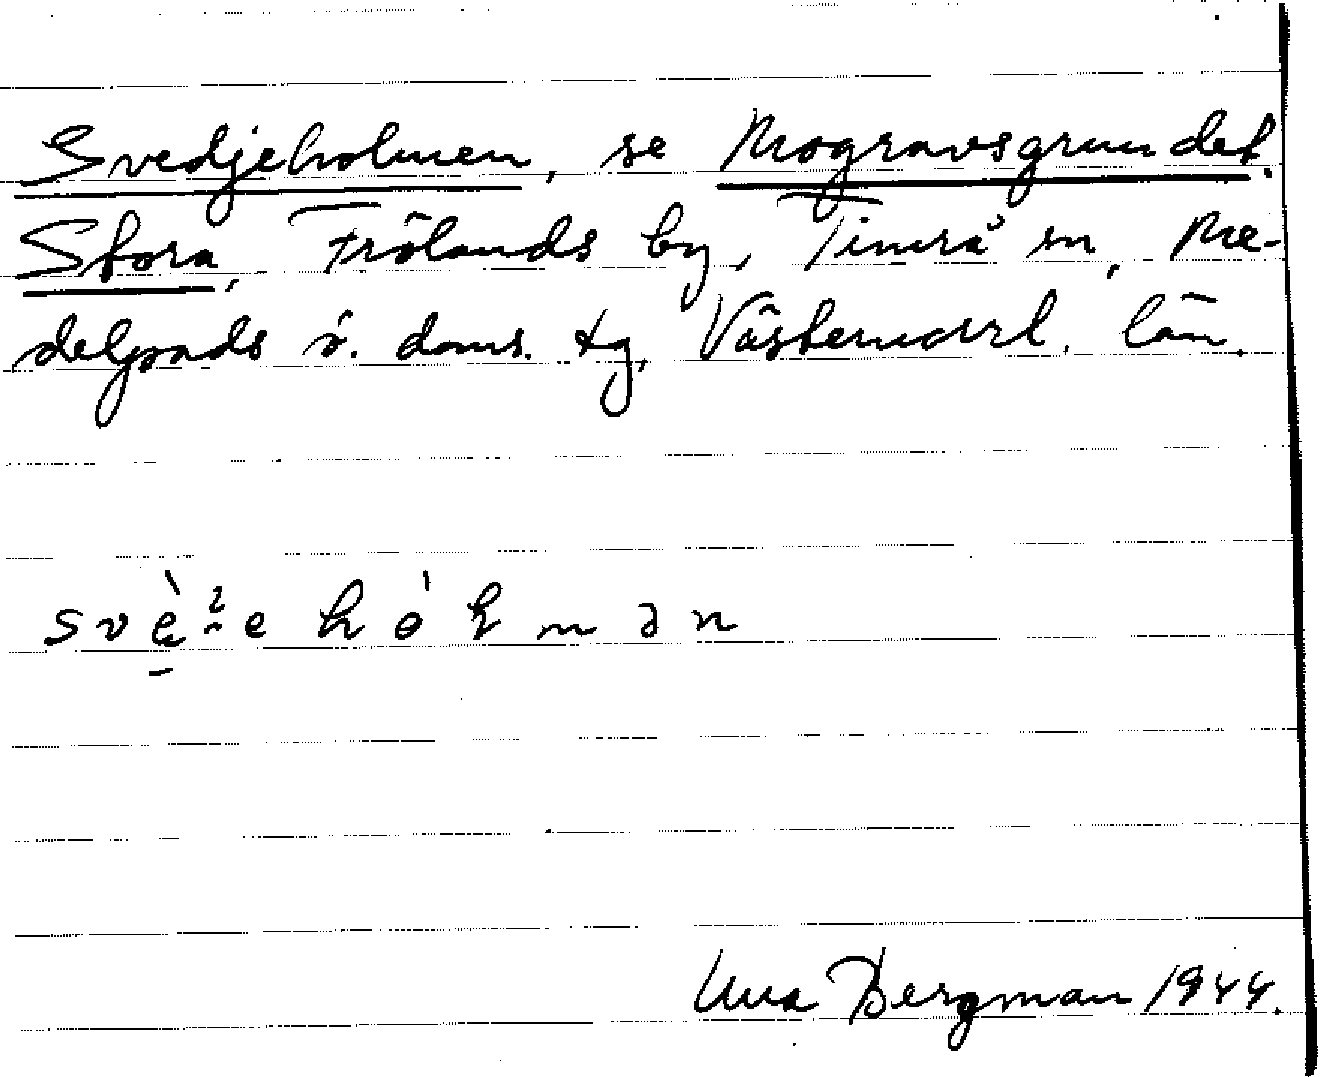 Svedjeholmen, se Mogravsgrundet.
Stora, Frölands by, Timrå sn, Me-
delpads ö. doms. tg, Västernorrl. län.
Una Bergman 1944.